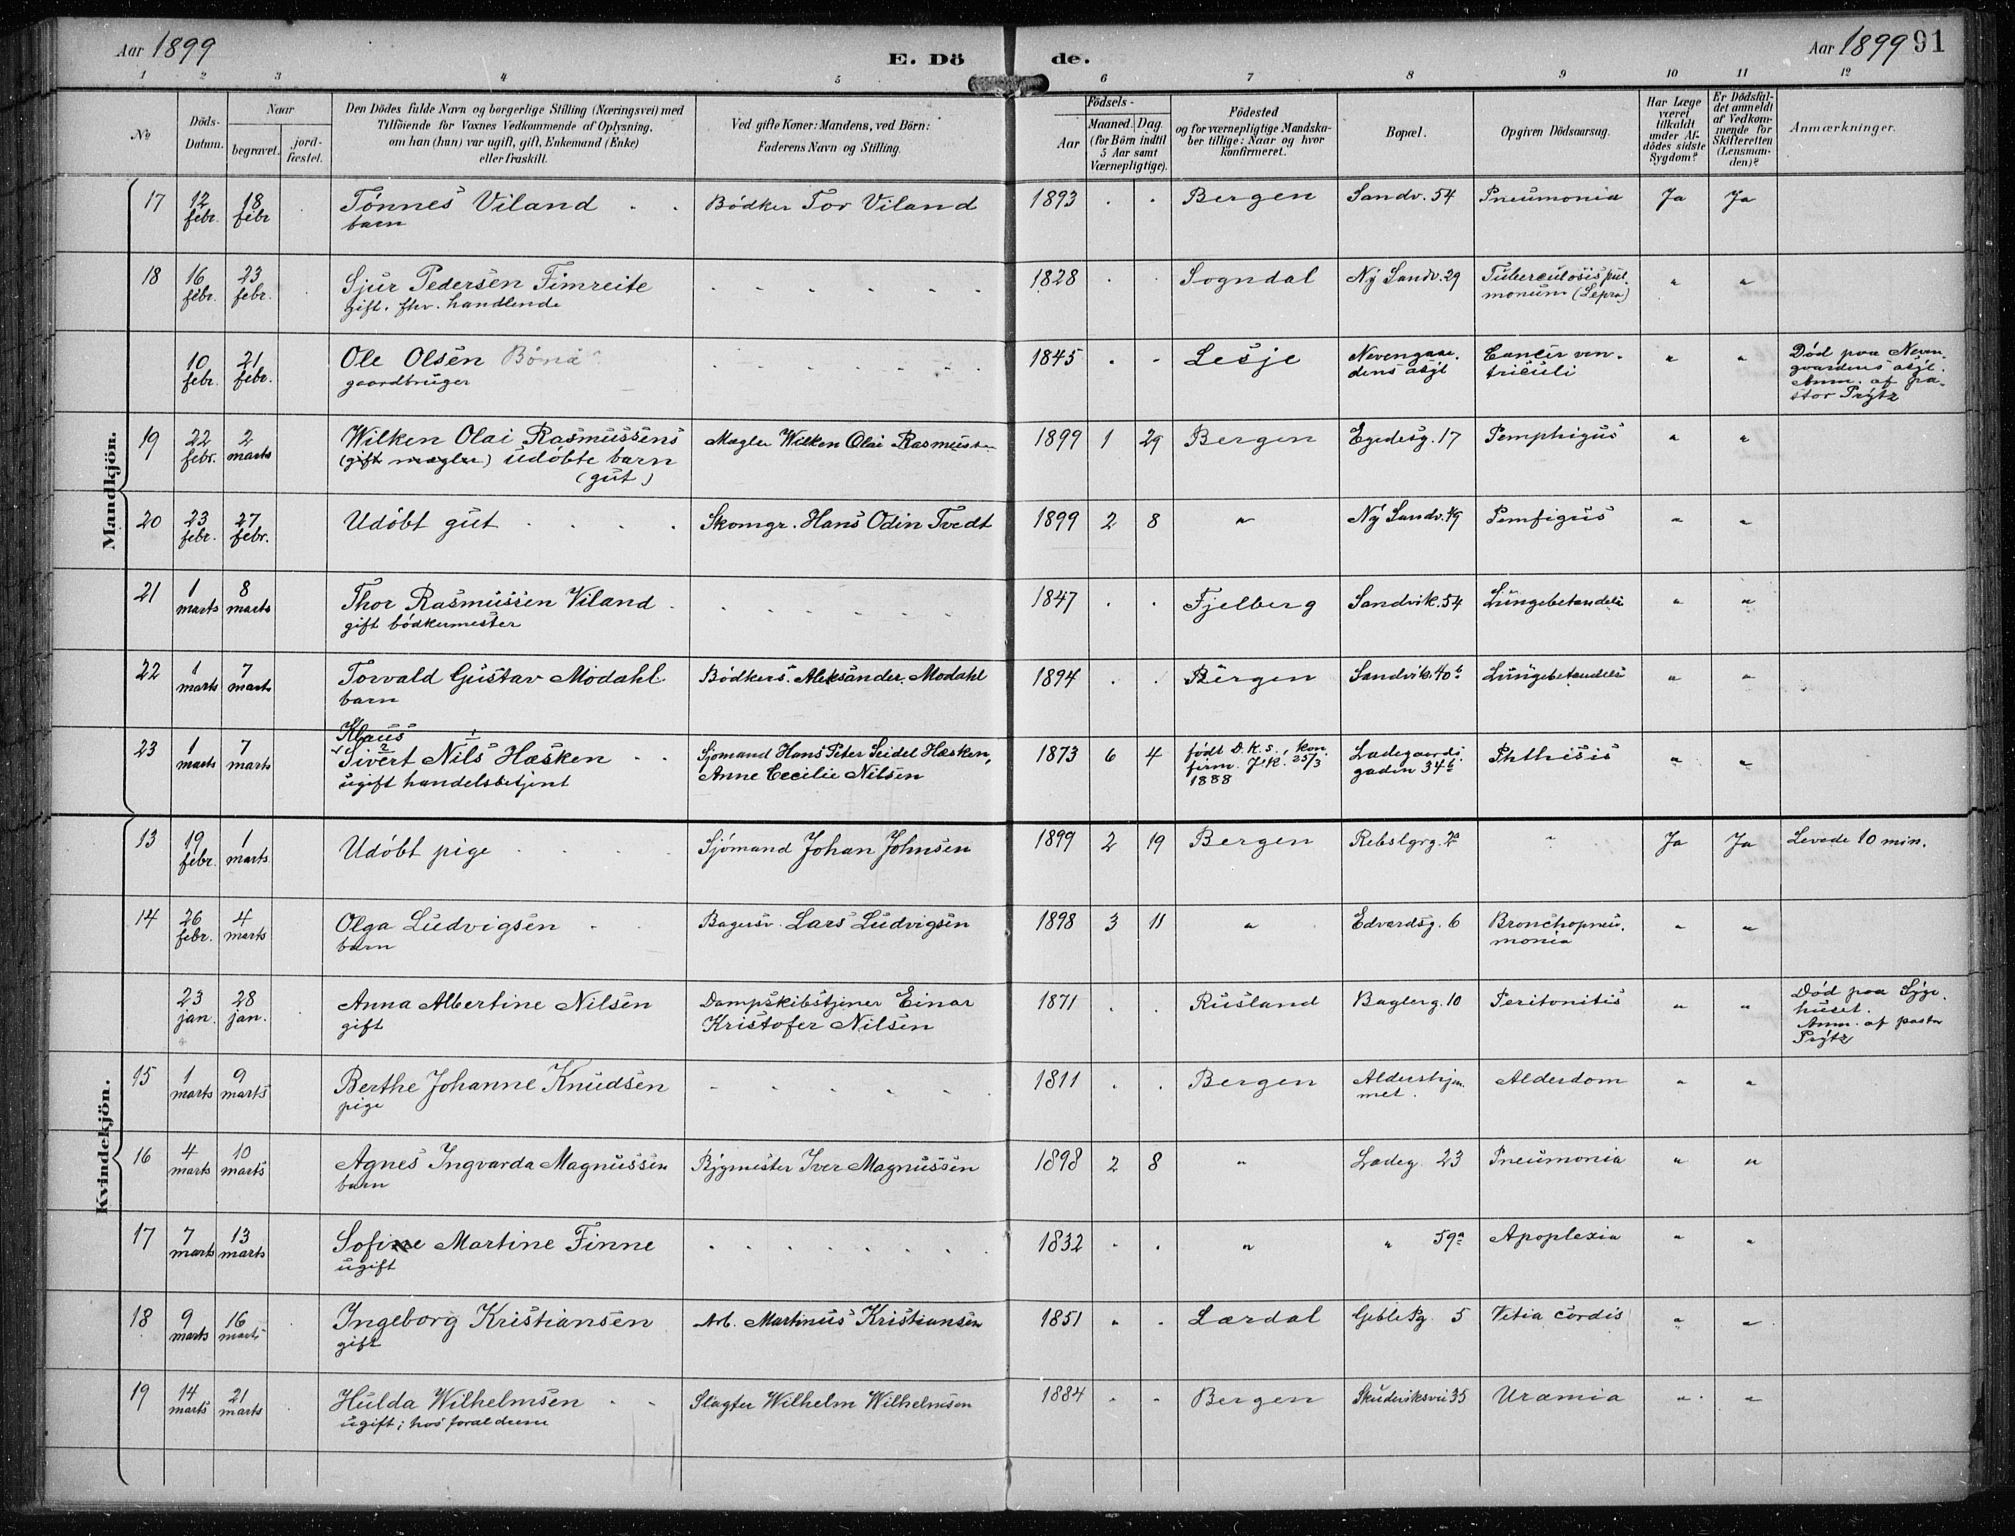 Aar 1899
E. Dö de.
Aar 1899 91
1 2 3 4 5 6 7 8 9 10 11 12
No
Döds-Datum.
Naar
begravet.
jord-fæstet.
Den Dödes fulde Navn og borgerlige Stilling (Næringsvei) med
Tilföiende for Voxnes Vedkommende af Oplysning,
om han (hun) var ugift, gift, Enkemand (Enke)
eller fraskilt.
Ved gifte Koner: Mandens, ved Börn:
Faderens Navn og Stilling.
Födsels-
Aar
Maaned. Dag
(for Börn indtil
5 Aar samt
Værnepligtige).
Födested
og for værnepligtige Mandska-
ber tillige: Naar og hvor
konfirmeret.
Bopæl.
Opgiven Dödsaarsag.
Har Læge
været
tilkaldt
under Af-
dödes sidste
Sygdom?
Er Dödsfal-
det anmeldt
af Vedkom-
mende for
Skifteretten
(Lensman-
den)?
Anmærkninger.
Mandkjön.
17 12 febr. 18 febr Tønnes Viland . . Bødker Tor Viland 1893 . . Bergen Sandv. 54 Pneumonia Ja Ja
barn
18 16 febr. 23 febr. Sjur Pedersen Fimreite . . . . . . . 1828 . . Sogndal Ny Sandv. 29 Tuberculosis pul-
gift. fhv. handlende monum (Lepra) " "
10 febr. 21 febr. Ole Olsen Bönä . . . . . . . 1845 . . Lesje Nevengaar- Cancer ven- " " Død paa Neven-
gaardbruger dens asyl triculi gaardens asyl.
Anm. af pa-
stor Prytz
19 22 febr. 2 marts Wilken Olai Rasmussens Mægler Wilken Olai Rasmussen 1899 1 29 Bergen Egedesg. 17 Pemphigus " "
(gift mægler) udøbte barn
(gut)
20 23 febr. 27 febr. Udøbt gut . . . . Skomgr. Hans Odin Tvedt 1899 2 8 " Ny Sandv. 49 Pemfigus " "
21 1 marts 8 marts Thor Rasmussen Viland . . . . . . . 1847 . . Fjelberg Sandvik. 54 Lungebetændelse " "
gift bødkermester
22 1 marts 7 marts Torvald Gustav Modahl Bødkers. Aleksander Modahl 1894 . . Bergen Sandvik. 40b Lungebetændelse " "
barn
Klaus
23 1 marts 7 marts Sivert 2 Nils 1 Hæsken . . Sjømand Hans Peter Seidel Hæsken, 1873 6 4 født D.K.s., kon- Ladegaards- Phthisis " "
ugift handelsbetjent Anne Cecilie Nilsen firm. J.K. 25/3 gaden 34b
1888
Kvindekjön.
13 19 febr. 1 marts Udøbt pige . . . . Sjømand Johan Johnsen 1899 2 19 Bergen Rebslgrg. 2a " Ja Ja Levede 10 min.
14 26 febr. 4 marts Olga Ludvigsen . . Bagersv. Lars Ludvigsen 1898 3 11 " Edvardsg. 6 Bronchopneu- " "
barn monia
23 jan. 28 jan. Anna Albertine Nilsen Dampskibstjener Einar 1871 . . Rusland Baglerg. 10 Peritonitis " " Død paa Syge-
gift Kristofer Nilsen huset.
Anm. af pastor
Prytz
15 1 marts 9 marts Berthe Johanne Knudsen . . . . . 1811 . . Bergen Aldershjem- Alderdom " "
pige met.
16 4 marts 10 marts Agnes Ingvarda Magnussen Bygmester Iver Magnussen 1898 2 8 " Ladeg. 23 Pneumonia " "
barn
17 7 marts 13 marts Sofine Martine Finne . . . . . . . 1832 . . " " 59a Apoplexia " "
ugift
18 9 marts 16 marts Ingeborg Kristiansen Arb. Martinus Kristiansen 1851 . . Lærdal Giblesg. 5 Vitia cordis " "
gift
19 14 marts 21 marts Hulda Wilhelmsen . . Slagter Wilhelm Wilhelmsen 1884 . . Bergen Skuteviksvei 35 Uræmia " "
ugift; hos forældrene